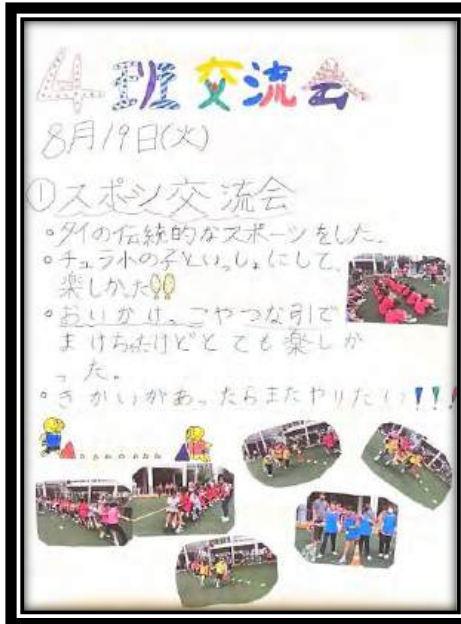 4班交流会
8月19日(火)
①スポーツ交流会
・タイの伝統的なスポーツをした。
・チュラ小の子といっしょにして、
楽しかった!!
・おいかけっこやつな引で
まけちゃったけどとても楽しか
った。
・きかいがあったらまたやりたい!!!